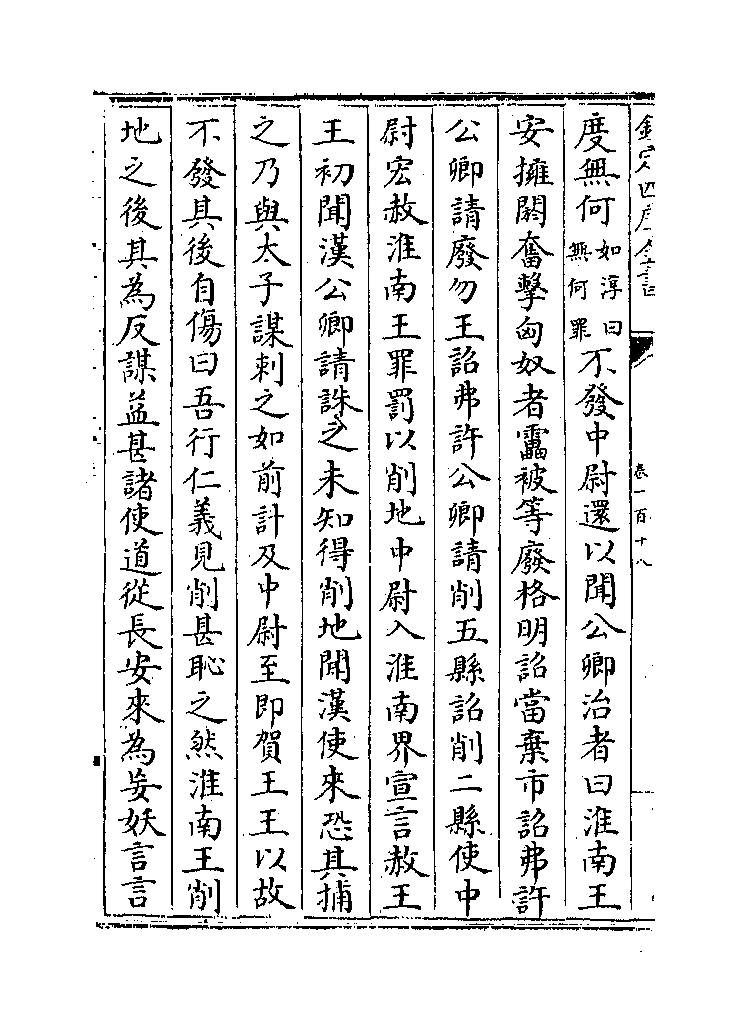 欽定四庫全書
卷一百十八
度無何如淳曰無何罪不發中尉還以聞公卿治者曰淮南王
安擁閼奮擊匈奴者靁被等廢格明詔當棄市詔弗許
公卿請廢勿王詔弗許公卿請削五縣詔削二縣使中
尉宏赦淮南王罪罰以削地中尉入淮南界宣言赦王
王初聞漢公卿請誅之未知得削地聞漢使來恐其捕
之乃與太子謀刺之如前計及中尉至即賀王王以故
不發其後自傷曰吾行仁義見削甚恥之然淮南王削
地之後其為反謀益甚諸使道從長安來為妄妖言言